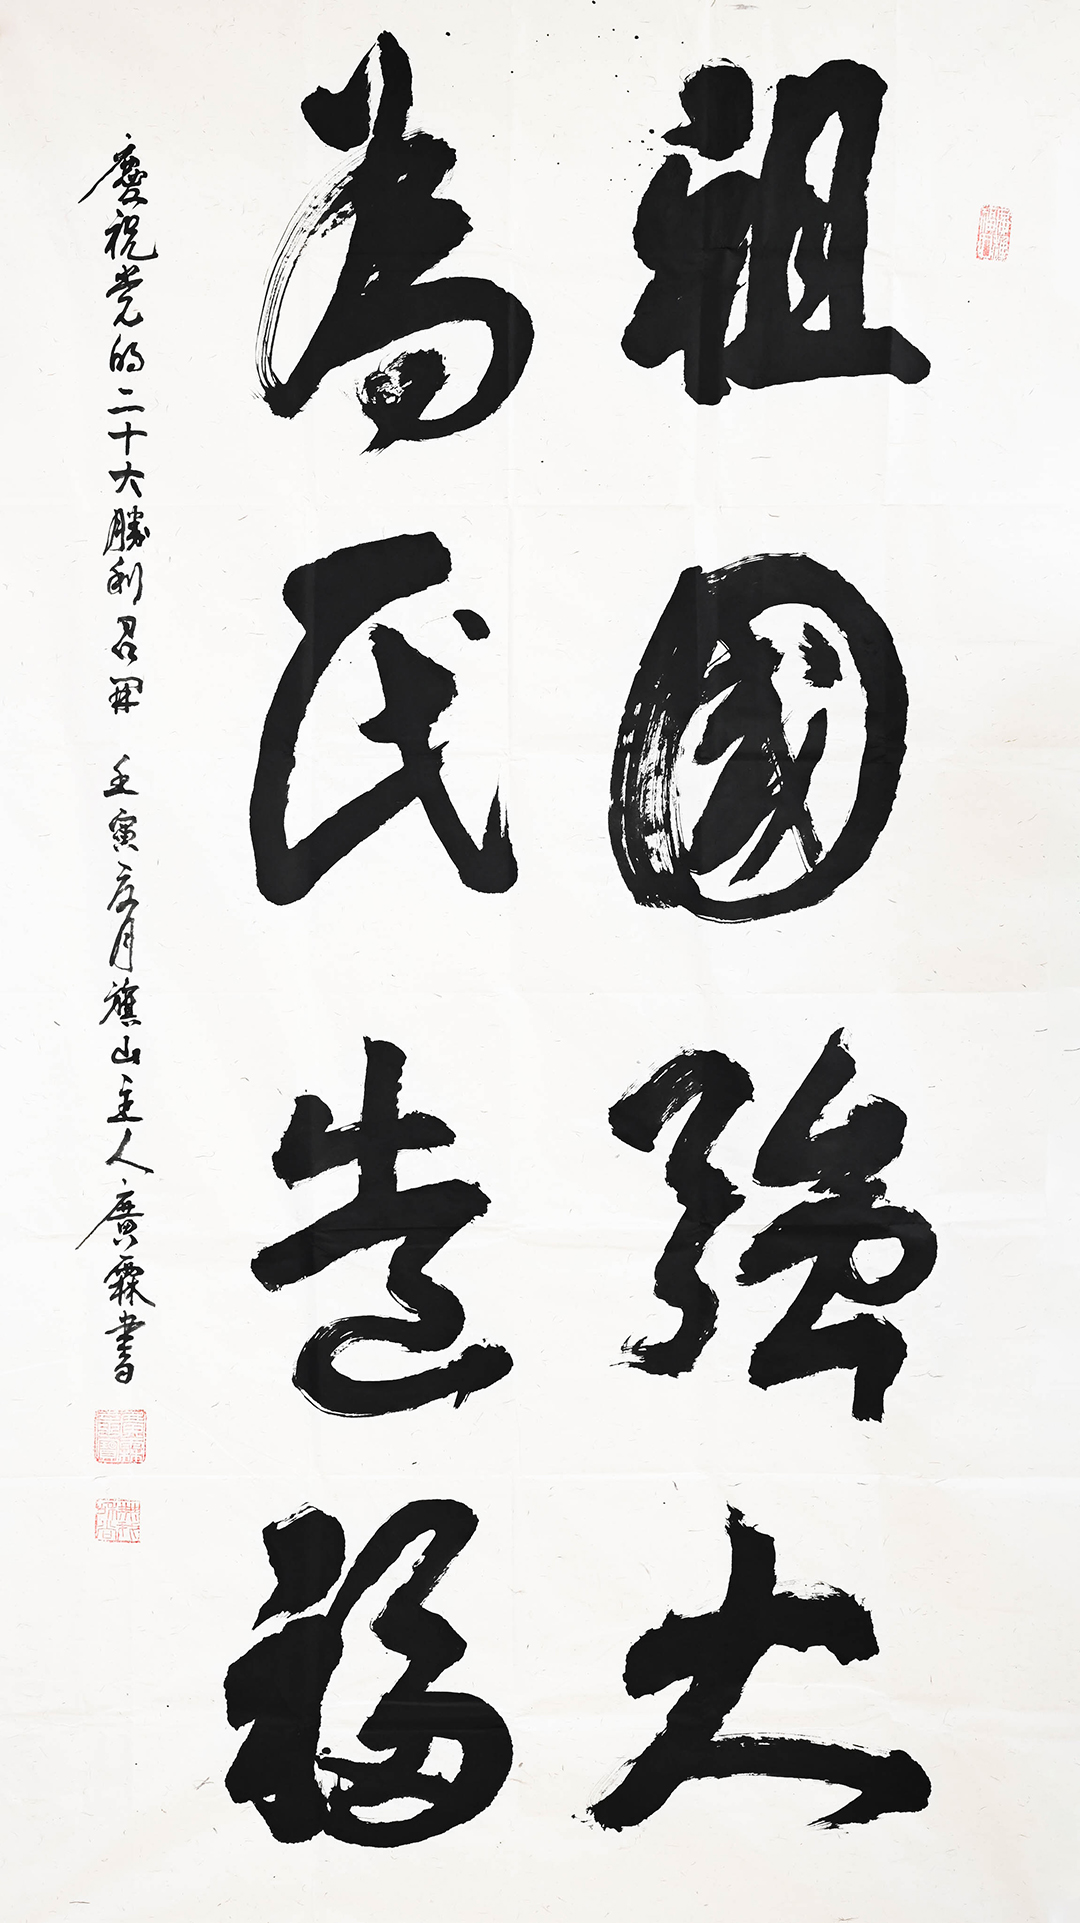 祖國強大
為民造福
慶祝党的二十大勝利召開 壬寅夏月旗山主人廣霖書